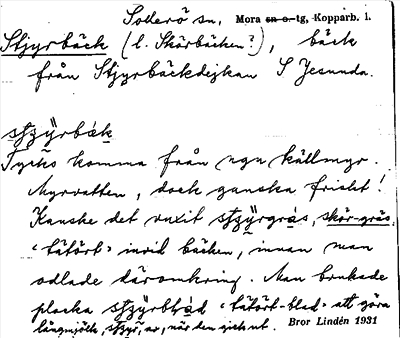 Sollerö sn, Mora sn o. tg, Kopparb. l.
Stjyrbäck (l. Skörbäcken?), bäck
från Stjyrbäckdejkan S Jesunda.
Tycks komma från ngn källmyr.
Myrvatten, dock ganska friskt!
Kanske det vuxit skör-gräs,
‹tätört› invid bäcken, innan man
odlade däromkring. Man brukade
plocka ‹tätört-blad› att göra
långmjölk, när den
Bror Lindén 1931